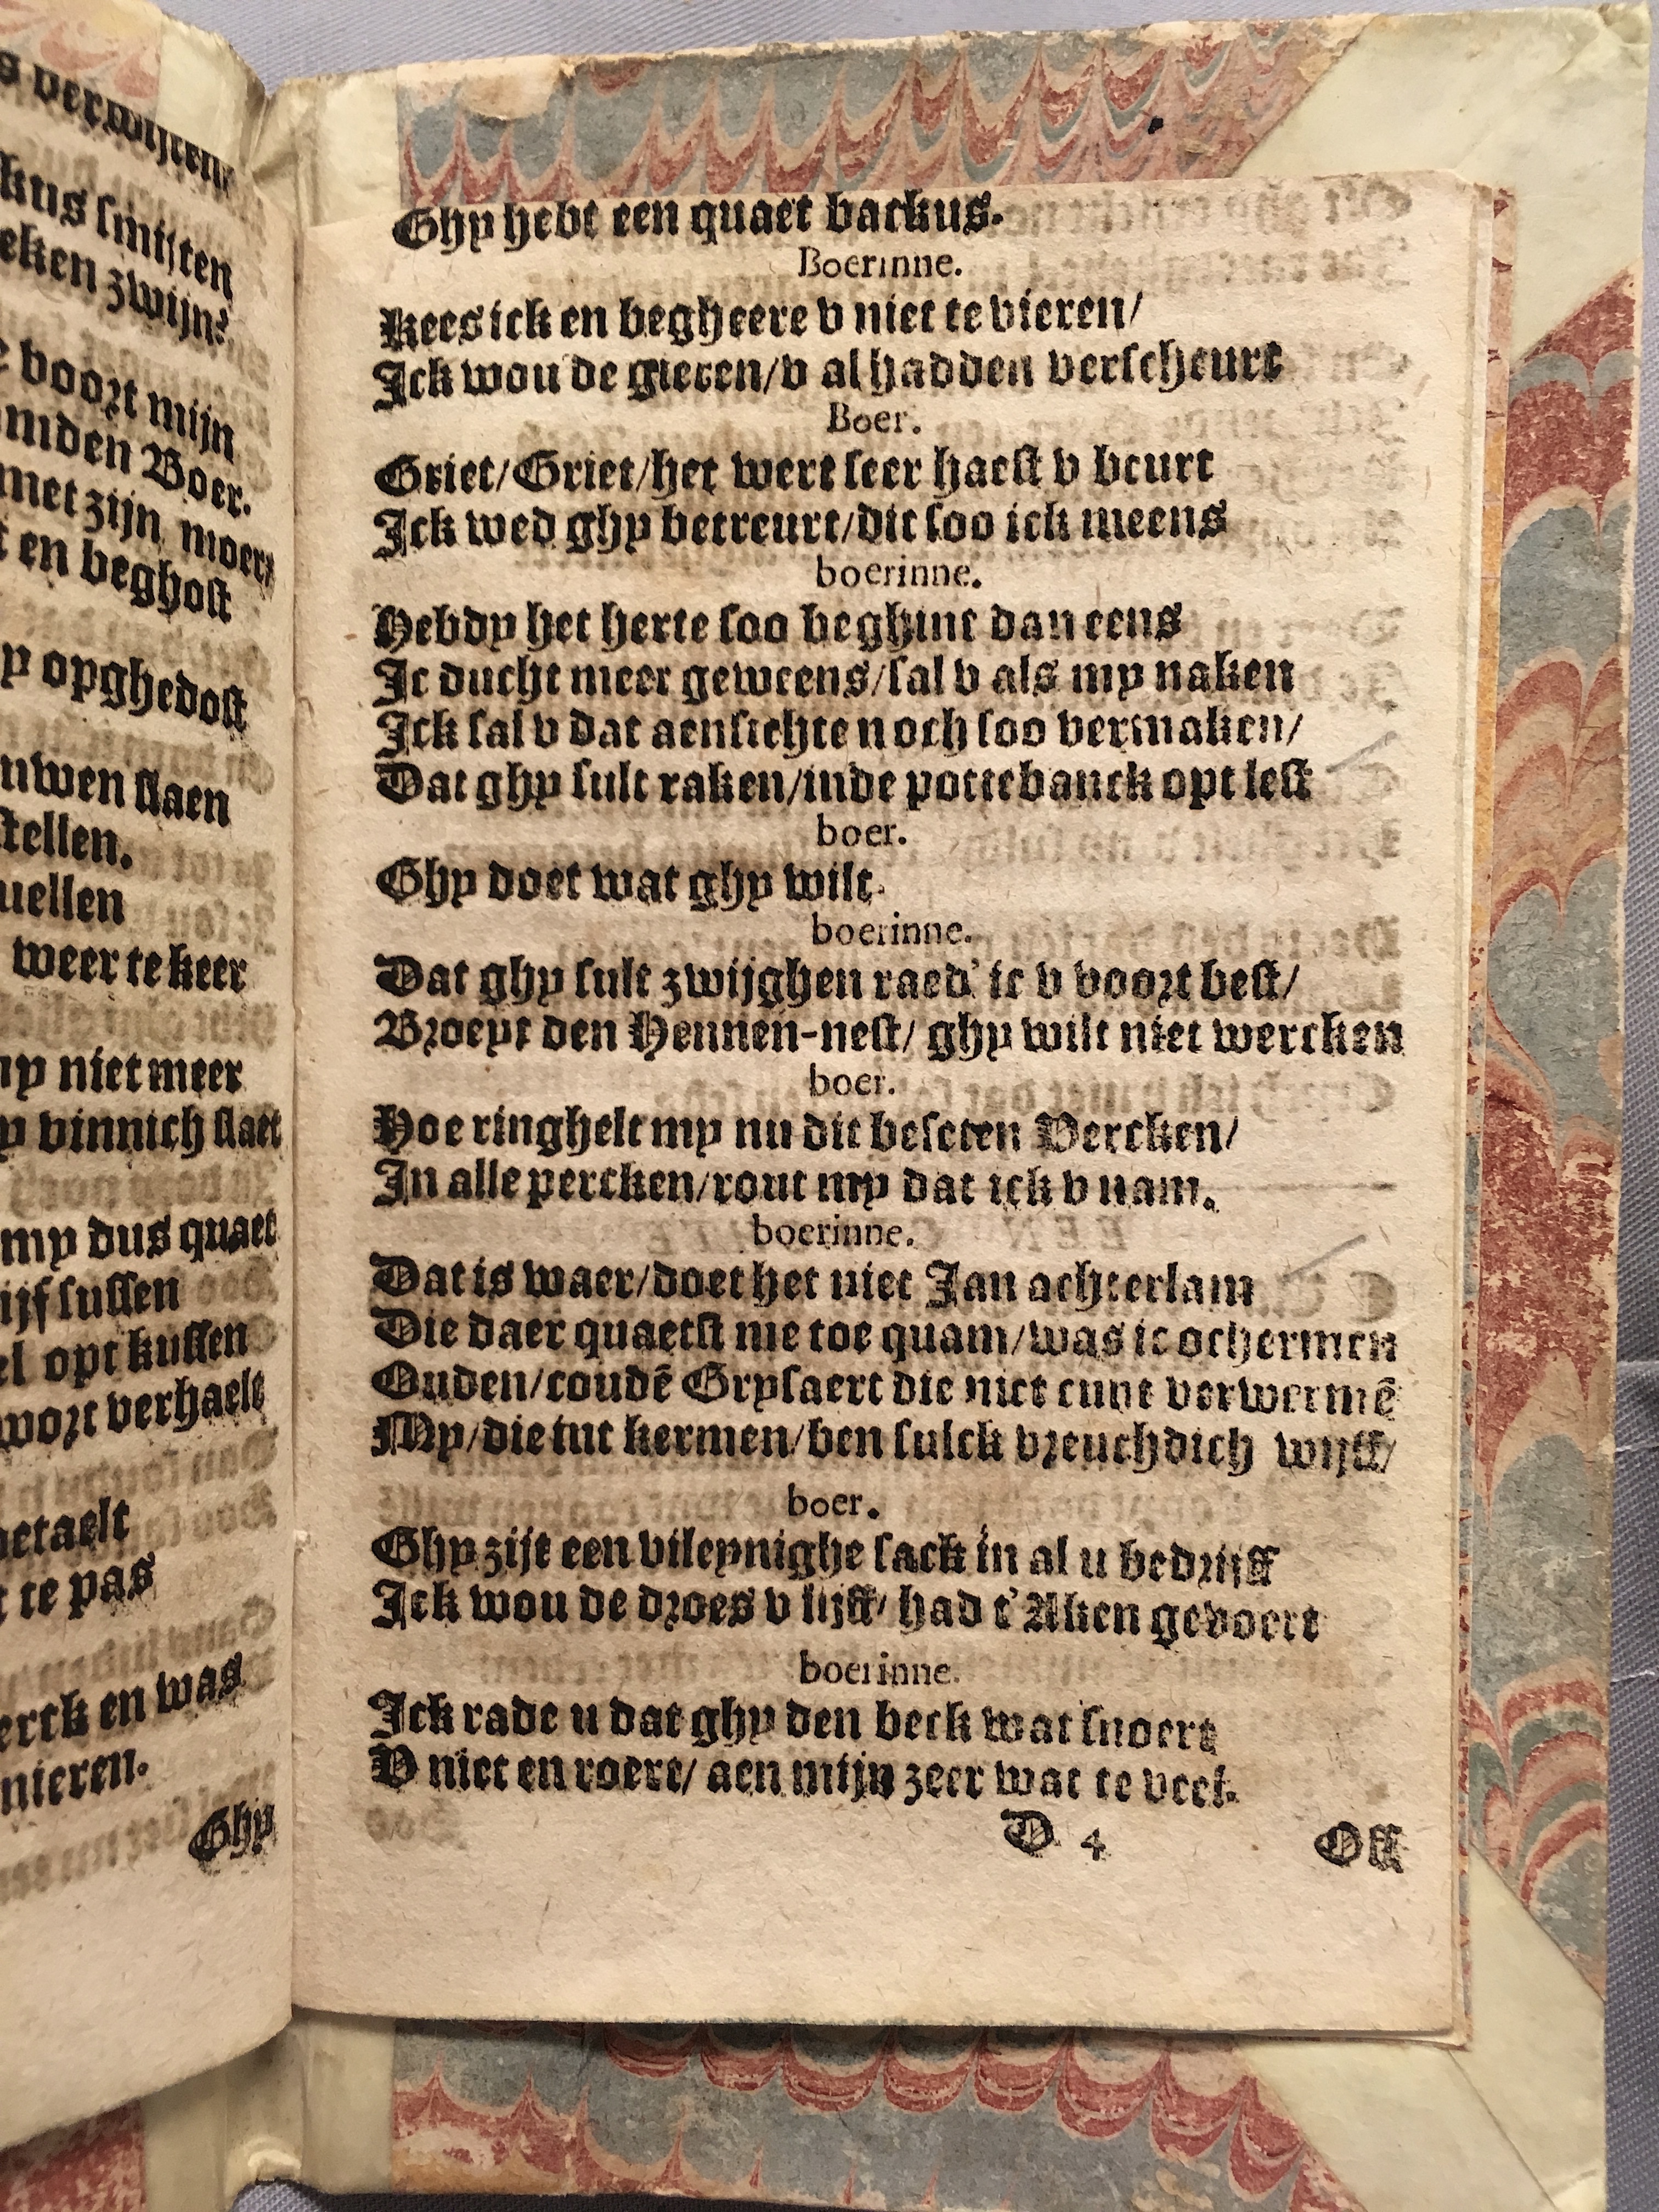 s verwijten
kus smijten
eken zwijn?
e voort mijn
mden Boer.
met zijn moer
t en beghost
y opghedost
uwen slaen
stellen.
uellen
weer te keer
my niet meer
y vinnich slaet
my dus quaet
ijf sussen
el opt kussen
wort verhaelt
betaelt
t te pas
erck en was
nieren.
Ghy
Ghy hebt een quaet backus.
Boerinne.
Kees ick en begheere v niet te vieren/
Ick wou de gieren/v al hadden verscheurt
Boer.
Griet/Griet/het wert seer haest v beurt
Ick wed ghy betreurt/dit soo ick meens
boerinne.
Hebdy het herte soo beghint dan eens
Ic ducht meer geweens/sal v als my naken
Ick sal v dat aensichte noch soo vermaken/
Dat ghy sult raken/inde pottebanck opt lest
boer.
Ghy doet wat ghy wilt.
boerinne.
Dat ghy sult zwijghen raed' ic v voort best/
Broeyt den Hennen-nest/ ghy wilt niet wercken
boer.
Hoe ringhelt my nu dit beseten Vercken/
In alle percken/rout my dat ick v nam.
boerinne.
Dat is waer/doet het niet Jan achterlam
Die daer quaetst me toe quam/was ic ochermen
Ouden/coudē Grysaert die niet cunt verwermē
My/die tut kermen/ben sulck vreuchdich wijff/
boer.
Ghy zijt een vileynighe sack in al u bedrijff
Ick wou de droes v lijff/ had t'Aken gevoert
boerinne.
Ick rade u dat ghy den beck wat snoert
V niet en roert/ aen mijn zeer wat te veel.
D 4
Off